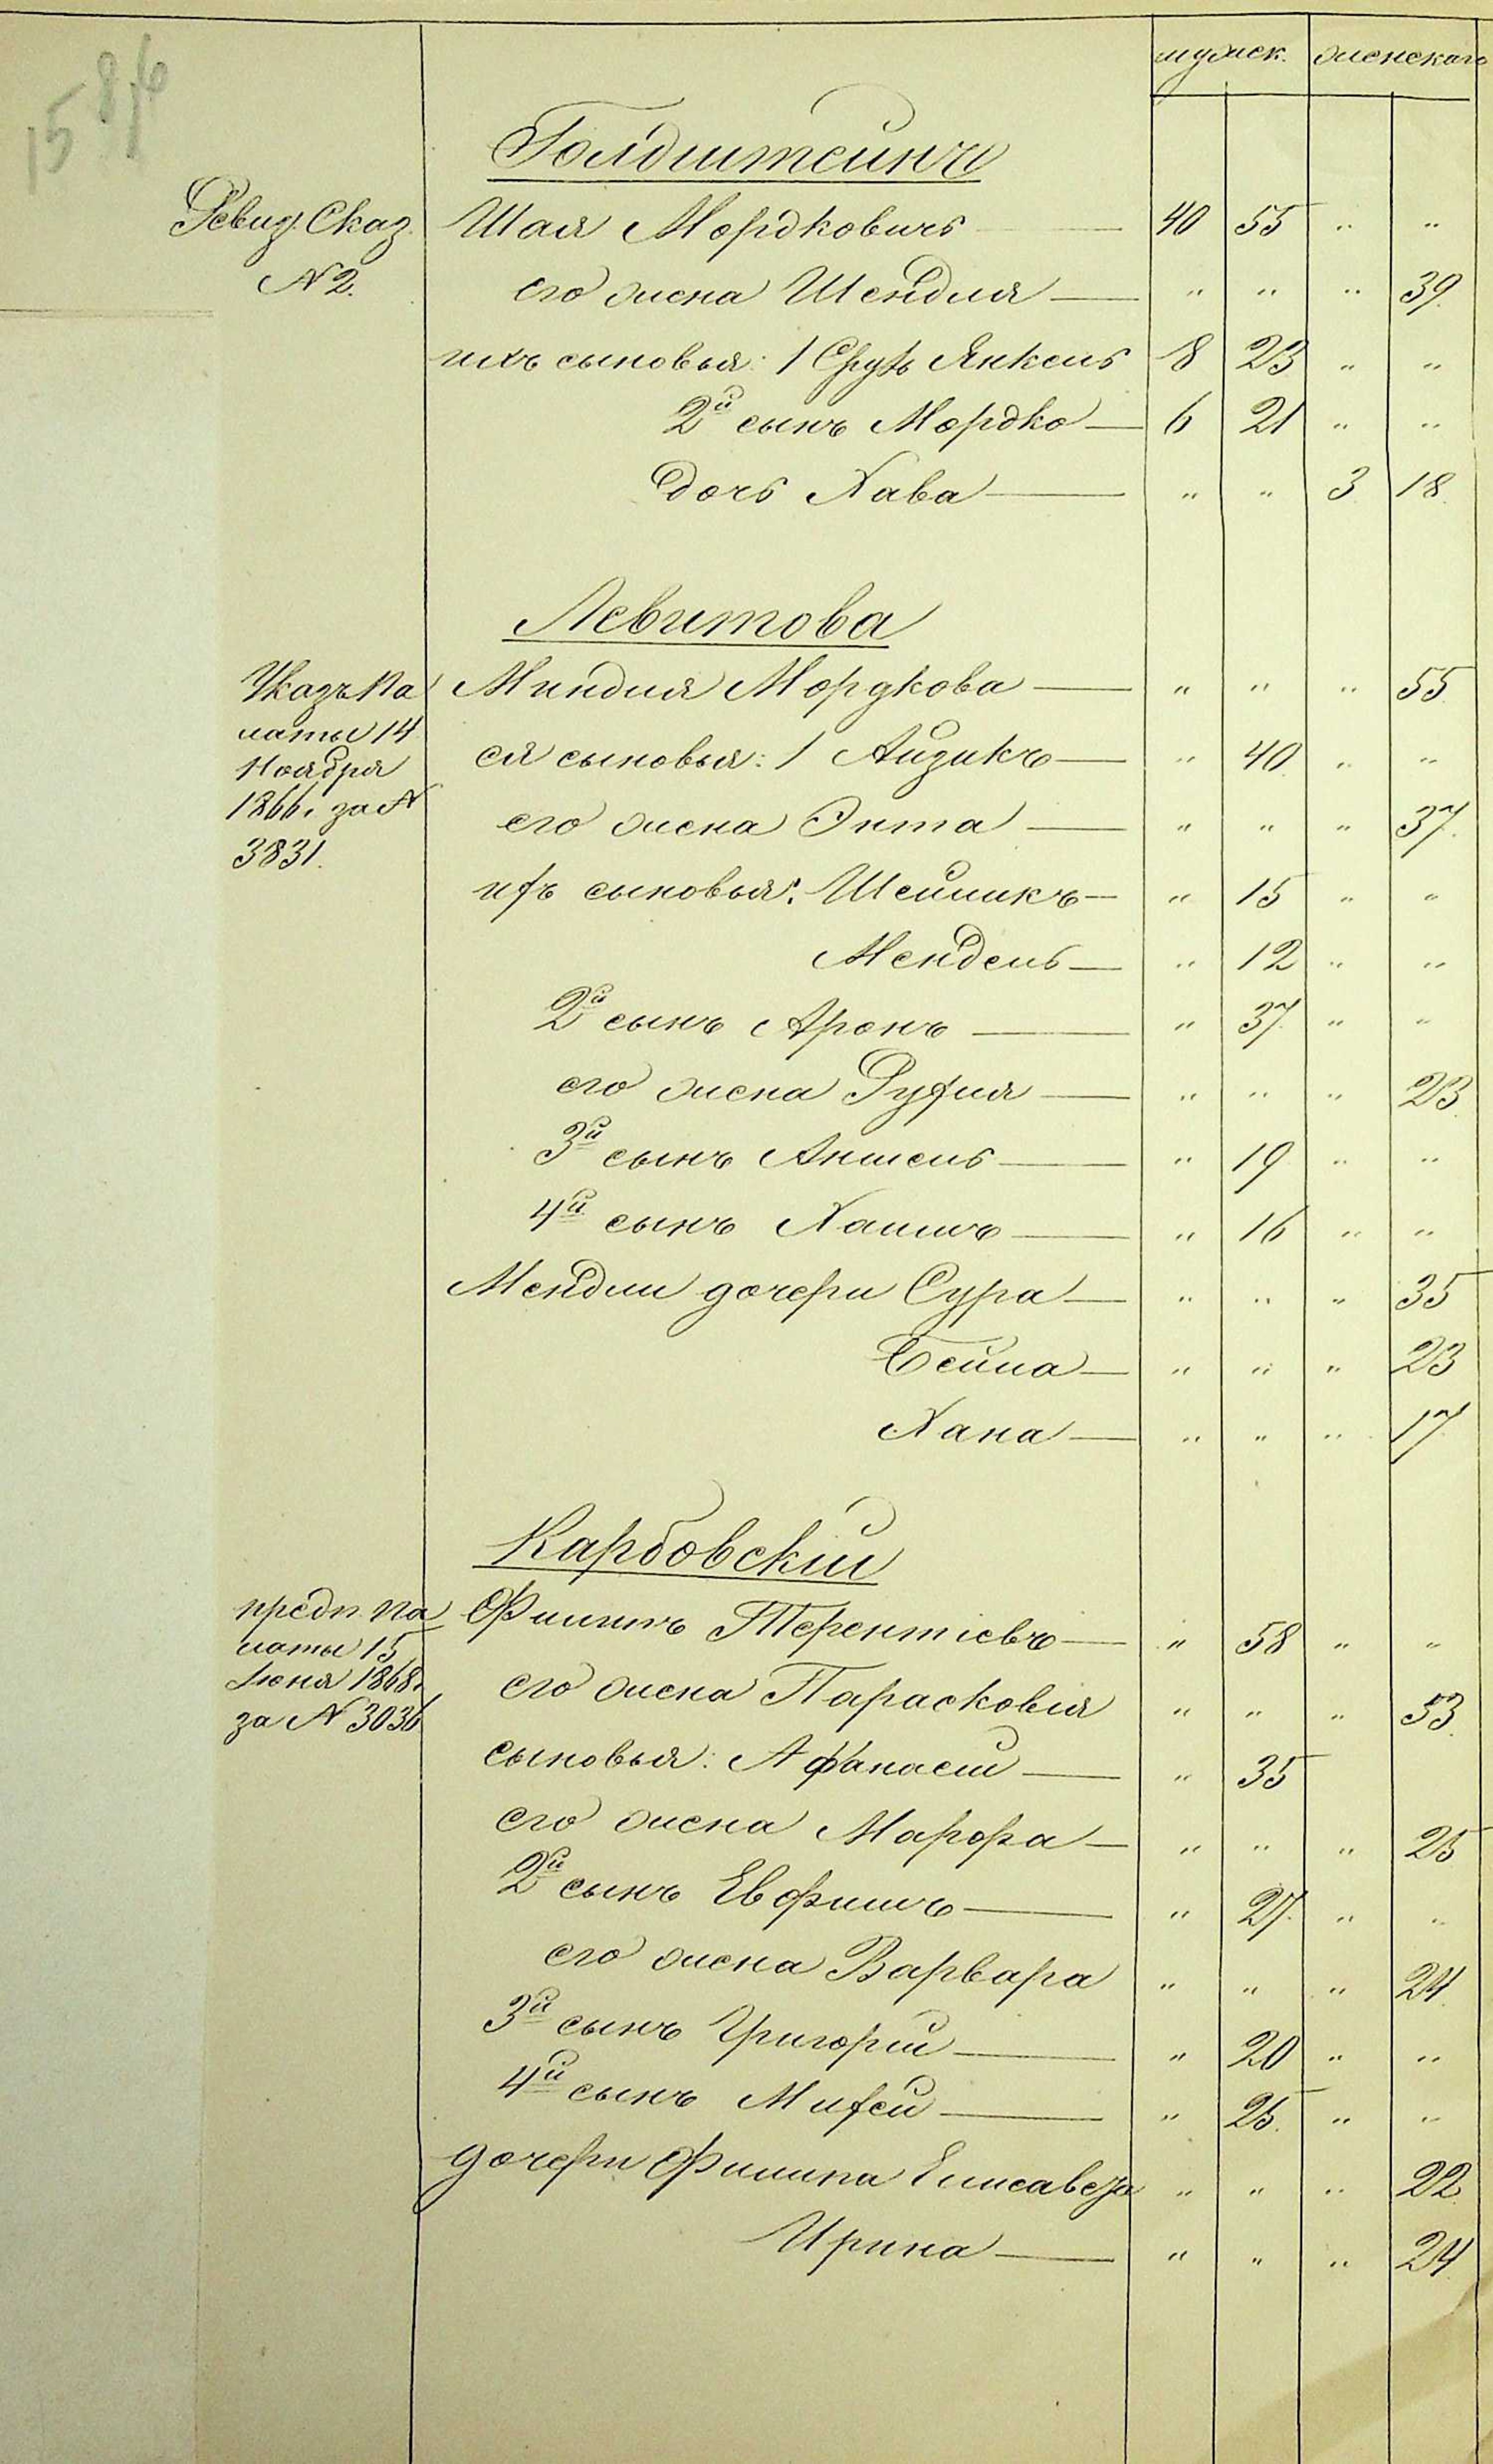 15 8/6
мужеск. женскаго
Голдштейнъ
Ревиз. Сказ. Шая Мордковичъ — 40 55 " "
№ 2. его жена Шендля — " " " 39.
ихъ сыновья: 1 Сруль Янкель 8 23 " "
2й сынъ Мордко — 6 21 " "
дочь Хава — " " 3 18.
Левитова
Указъ Па Миндля Мордкова — " " " 55
латы 14 ея сыновья: 1 Айзикъ — " 40 " "
Ноября
1866 г. за № его жена Энта — " " " 37.
3831. ихъ сыновья: Шейликъ — " 15 " "
Мендель — " 12 " "
2й сынъ Аронъ — " 37. " "
его жена Рухля — " " " 23
3й сынъ Аншель — " 19 " "
4й сынъ Хаимъ — " 16 " "
Мендли дочери Сура — " " " 35
Бейла — " " " 23
Хана — " " " 17.
Карбовскій
предп. Па Филипъ Терентіевъ — " 58 " "
латы 15
Іюня 1868 г. его жена Парасковія " " " 53.
за № 3036 сыновья: Афанасій — " 35
его жена Марфа — " " " 25
2й сынъ Евфимъ — " 27. " "
его жена Варвара " " " 24.
3й сынъ Григорій — " 20 " "
4й сынъ Михей — " 25. " "
дочери Филипа Елисавета " " " 22.
Ирина — " " " 24.